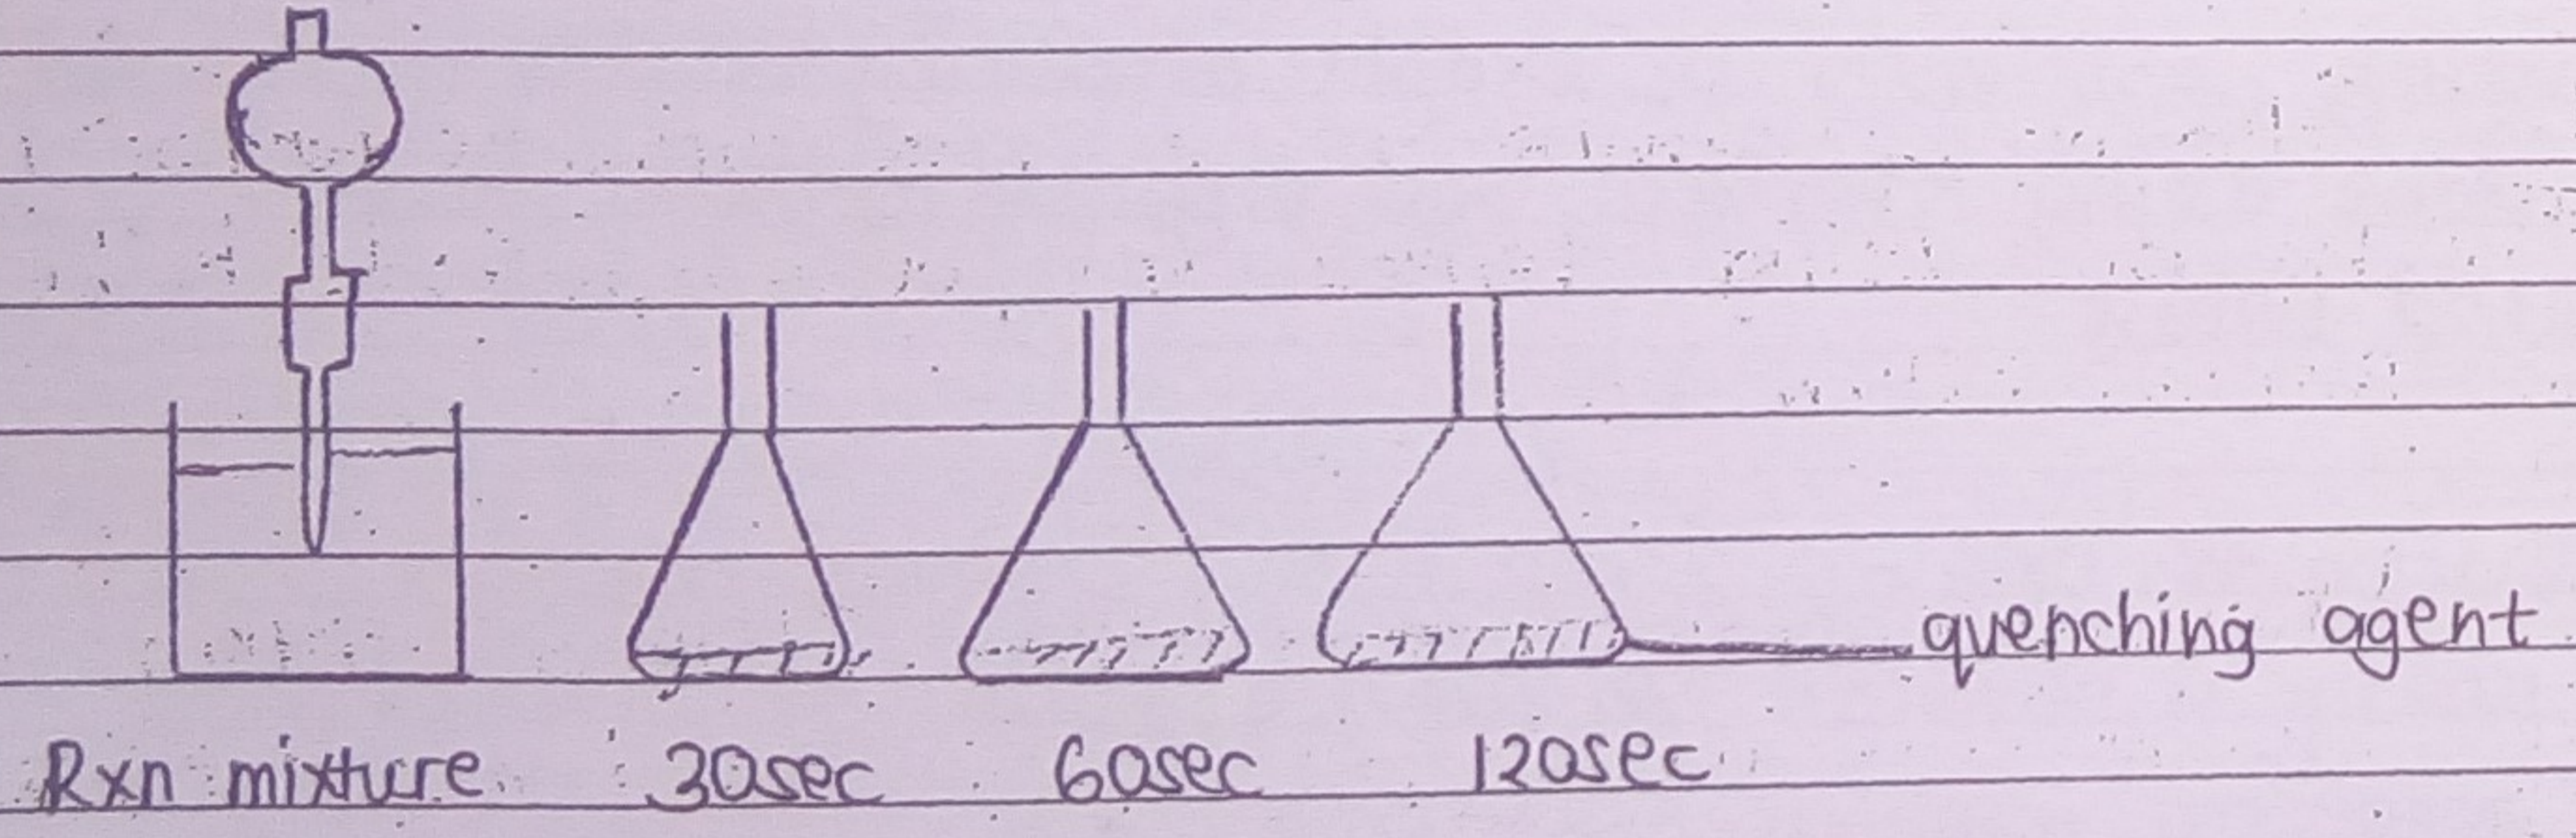 quenching agent
Rxn mixture 30sec 60sec 120sec